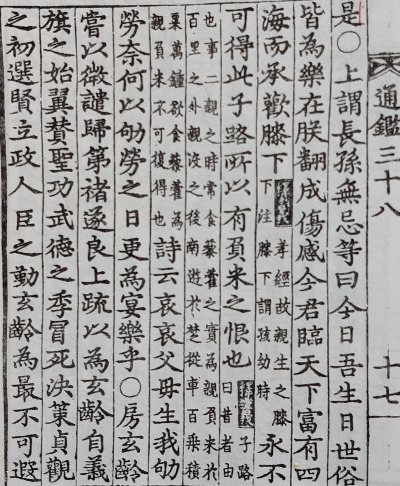 通鑑三十八 十七
是○上謂長孫無忌等曰今日吾生日世俗
皆為樂在朕翻成傷感今君臨天下富有四
海而承歡膝下釋義孝經故親生之膝下注膝下謂孩幼時永不
可得此子路所以有負米之恨也釋義子路曰昔者由
也事二親之時常食藜藿之實為親負米於
百里之外親沒之後南遊於楚從車百乘積
粟萬鍾欲食藜藿為親負米不可復得也詩云哀哀父母生我劬
勞奈何以劬勞之日更為宴樂乎○房玄齡
嘗以微譴歸第褚遂良上疏以為玄齡自義
旗之始翼贊聖功武德之季冒死決策貞觀
之初選賢立政人臣之勤玄齡為最不可遐